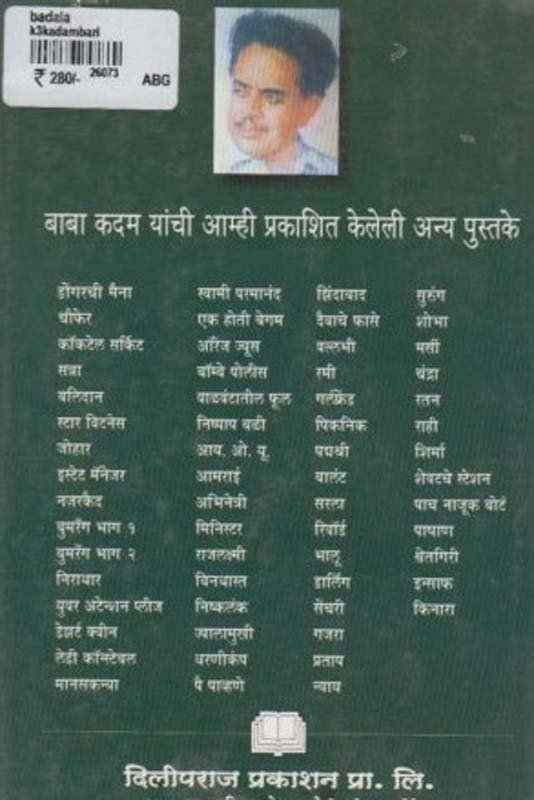 badala
k3kadambari
₹ 280/- 26073 ABG
बाबा कदम यांची आम्ही प्रकाशित केलेली अन्य पुस्तके
डोंगरची मैना स्वामी परमानंद झिंदाबाद सुरुंग
चौफेर एक होती बेगम दैवाचे फासे शोभा
कॉकटेल सर्किट ऑरेंज ज्यूस वल्लभी मर्सी
सत्रा बॉम्बे पोलीस रमी चंद्रा
बलिदान वाळवंटातील फूल गर्लफ्रेंड रतन
स्टार विटनेस निष्पाप बळी पिकनिक राही
जोहार आय. ओ. यू. पद्मश्री शिर्मा
इस्टेट मॅनेजर आमराई बालंट शेवटचे स्टेशन
नजरकैद अभिनेत्री सरला पाच नाजूक बोटं
बुमरँग भाग १ मिनिस्टर रिवॉर्ड पाषाण
बुमरँग भाग २ राजलक्ष्मी भालू श्वेतगिरी
निराधार बिनधास्त डार्लिंग इन्साफ
युवर अटेन्शन प्लीज निष्कलंक सेंचरी किनारा
डेझर्ट क्वीन ज्वालामुखी गजरा
लेडी कॉन्स्टेबल धरणीकंप प्रताप
मानसकन्या पै पाव्हणे न्याय
दिलीपराज प्रकाशन प्रा. लि.